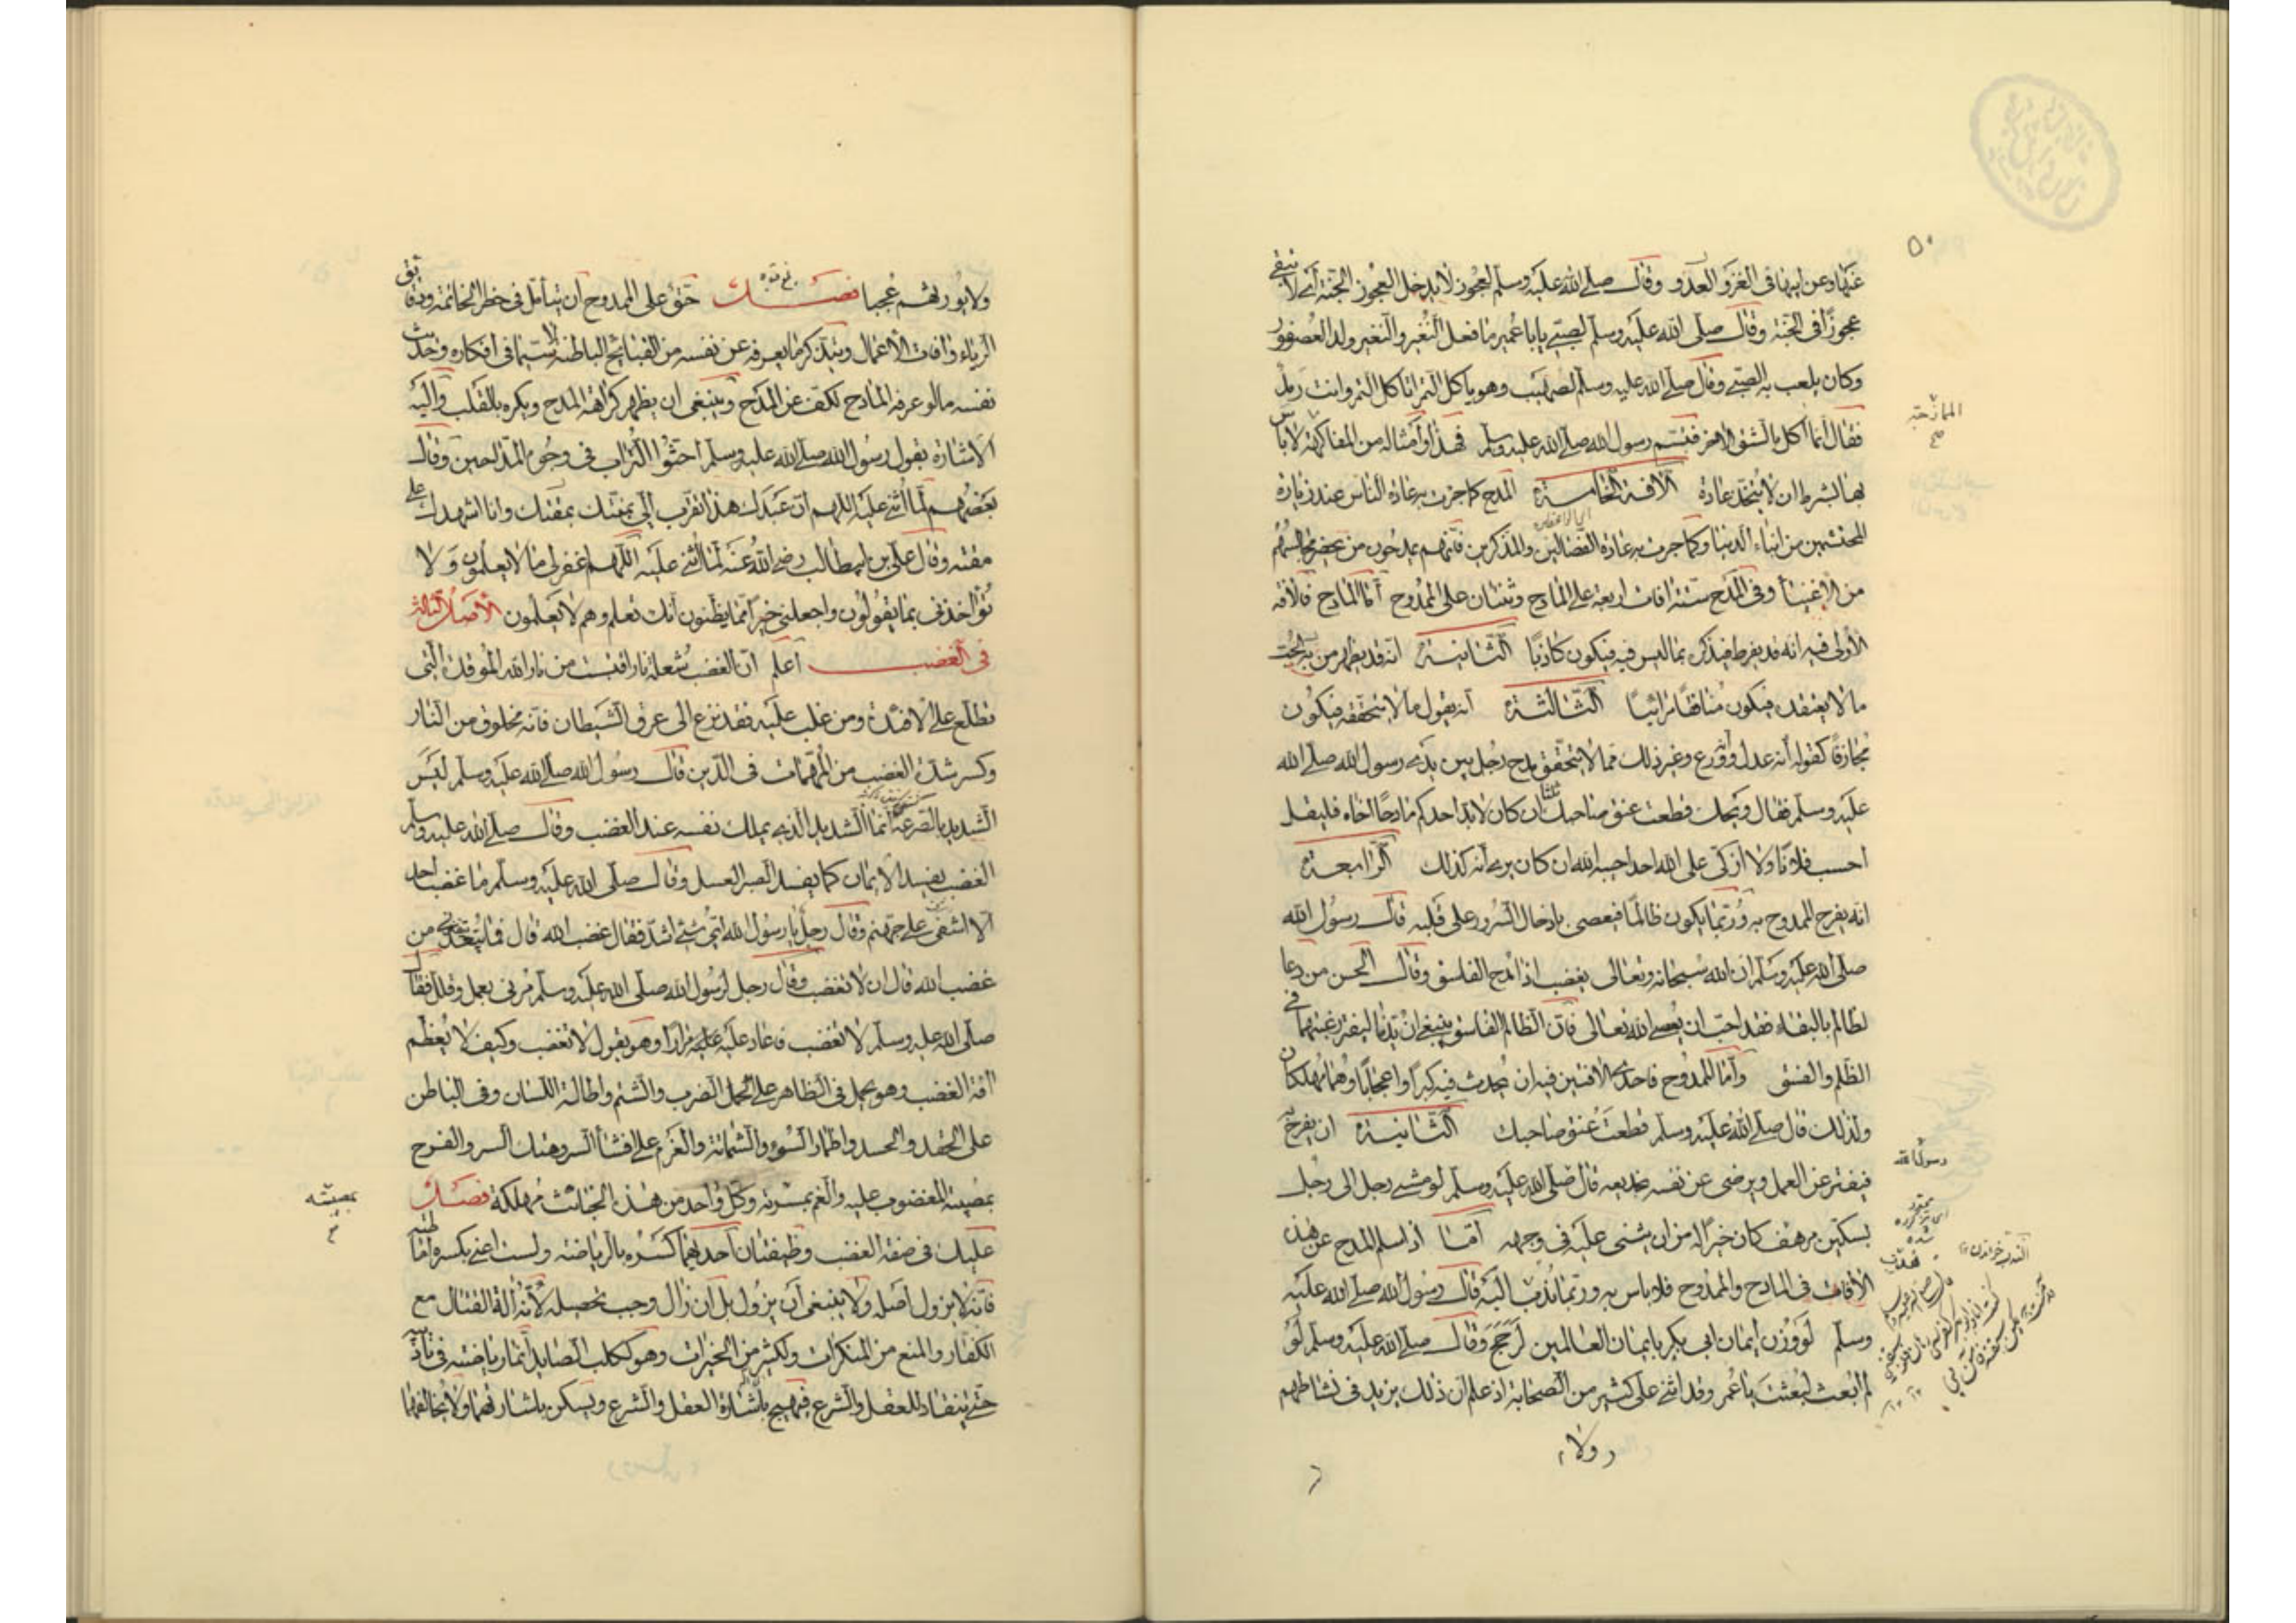 ٥٠
عنها وعن ابيها في الغزو العدو وقال صلى الله عليه وسلم لعجوز لا يدخل العجوز الجنة اى لا تبقى
عجوزًا في الجنة وقال صلى الله عليه وسلم لصبي يا ابا عُمير ما فعل النُغير والنغير ولد العُصفور
وكان يلعب به الصبي وقال صلى الله عليه وسلم لصهيب وهو يأكل التمر اتأكل التمر وانت رمد
فقال انما اكل بالشق الاخر فتبسم رسول الله صلى الله عليه وسلم فهذا وأمثاله من المفاكهة لا بأس
بها بشرط ان لا يتخذ عادة الآفة الخامسة المدح كما جرت به عادة الناس عند زيارة
المحتشمين من ابناء الدنيا وكما جرت به عادة القصاصين والمذكرين فانهم يمدحون من يحضر مجالسهم
من الاغنيا وفي المدح ستة افات اربعة على المادح وثنتان على الممدوح أما المادح فالافة
الأولى فيه انه قد يفرط فيذكره بما ليس فيه فيكون كاذبًا الثانية انه قد يظهر من الحب
ما لا يعتقده فيكون منافقًا مرائيًا الثالثة انه يقول ما لا يتحققه فيكون
مُجازفًا كقوله انه عدل وورع وغير ذلك مما لا يتحقق مدح رجل بين يدي رسول الله صلى الله
عليه وسلم فقال ويحك قطعت عنق صاحبك ان كان لا بد احدكم مادحًا اخاه فليقل
احسب فلانًا ولا ازكى على الله احدا حسبه الله ان كان يرى انه كذلك الرابعة
انه يفرح الممدوح به وربما يكون ظالمًا فيعصى بادخال السرور على قلبه قال رسول الله
صلى الله عليه وسلم ان الله سبحانه وتعالى يغضب اذا مدح الفاسق وقال الحسن من دعا
لظالم بالبقاء فقد احب ان يعصى الله تعالى فان الظالم الفاسق ينبغي ان يذما ليفتر رغبتهما في
الظلم والفسق وأما الممدوح فاحدى الافتين فيه ان يحدث فيه كبرًا واعجابًا وهما مهلكان
ولذلك قال صلى الله عليه وسلم قطعت عنق صاحبك الثانية ان يفرح به
فيفتر عن العمل ويرضى عن نفسه قال صلى الله عليه وسلم لو مشى رجل الى رجل
بسكين مرهف كان خيرًا له من ان يثنى عليه في وجهه أمّا اذا سلم المدح عن هذه
الآفات في المادح والممدوح فلا باس به وربما نُدب اليه قال رسول الله صلى الله عليه
وسلم لو وُزن ايمان ابى بكر بايمان العالمين لرجح وقال صلى الله عليه وسلم لو
لم ابعث لبعثت يا عُمر وقد اثنى على كثير من الصحابة اذ علم ان ذلك يزيد في نشاطهم
ولا
الممازحة
رسول الله
ولا يورثهم عُجبا فصل حق على الممدوح ان يتأمل في خطر الخاتمة ودقائق
الرياء وافات الأعمال ويتذكر ما يعرفه عن نفسه من القبايح الباطنة لا سيما في افكاره وحديث
نفسه ما لو عرفه المادح لكف عن المدح وينبغى ان يظهر كراهة المدح ويكره بالقلب واليه
الاشارة بقول رسول الله صلى الله عليه وسلم احثوا التراب في وجوه المداحين وقال
بعضهم لما اثنى عليه اللهم ان عبدك هذا تقرب الى بمقتك وانا اشهدك على
مقته وقال على بن ابيطالب رضى الله عنه لما اثنى عليه اللهم اغفر لى ما لا يعلمون ولا
تؤاخذنى بما يقولون واجعلنى خيرًا مما يظنون انك تعلم وهم لا يعلمون الأصل الثالث
في الغضب اعلم ان الغضب شعلة نار اقتبست من نار الله الموقدة التى
تطلع على الافئدة ومن غلب عليه فقد نزع الى عرق الشيطان فانه مخلوق من النار
وكسر شدة الغضب من المهمات في الدين قال رسول الله صلى الله عليه وسلم ليس
الشديد بالصرعة انما الشديد الذى يملك نفسه عند الغضب وقال صلى الله عليه وسلم
الغضب يفسد الايمان كما يفسد الصبر العسل وقال صلى الله عليه وسلم ما غضب احد
الا اشفى على جهنم وقال رجل يا رسول الله اى شىء اشد فقال غضب الله قال فما يبعدنى من
غضب الله قال ان لا تغضب وقال رجل لرسول الله صلى الله عليه وسلم مرنى بعمل وقلل فقال
صلى الله عليه وسلم لا تغضب فاعاد عليه مرارًا وهو يقول لا تغضب وكيف لا يعظم
آفة الغضب وهو يحمل في الظاهر على الضرب والشتم واطالة اللسان وفي الباطن
على الحقد والحسد واظهار السوء والشماتة والعزم على افشأ السر وهتك الستر والفرح
بمصيبة المغضوب عليه والغم بمسرته وكل واحد من هذه الخبائث مُهلكة فصل
عليك في صفة الغضب وظيفتان احديهما كسره بالرياضة ولست اعنى بكسره اماطته
فانه لا يزول اصله ولا ينبغى ان يزول بل ان زال وجب تحصيله لأنه آلة القتال مع
الكفار والمنع من المنكرات ولكثير من الخيرات وهو ككلب الصايد انما رياضته في تأديبه
حتى ينقاد للعقل والشرع فيهيج باشارة العقل والشرع ويسكن باشارتهما ولا يخالفهما
بمصيبته